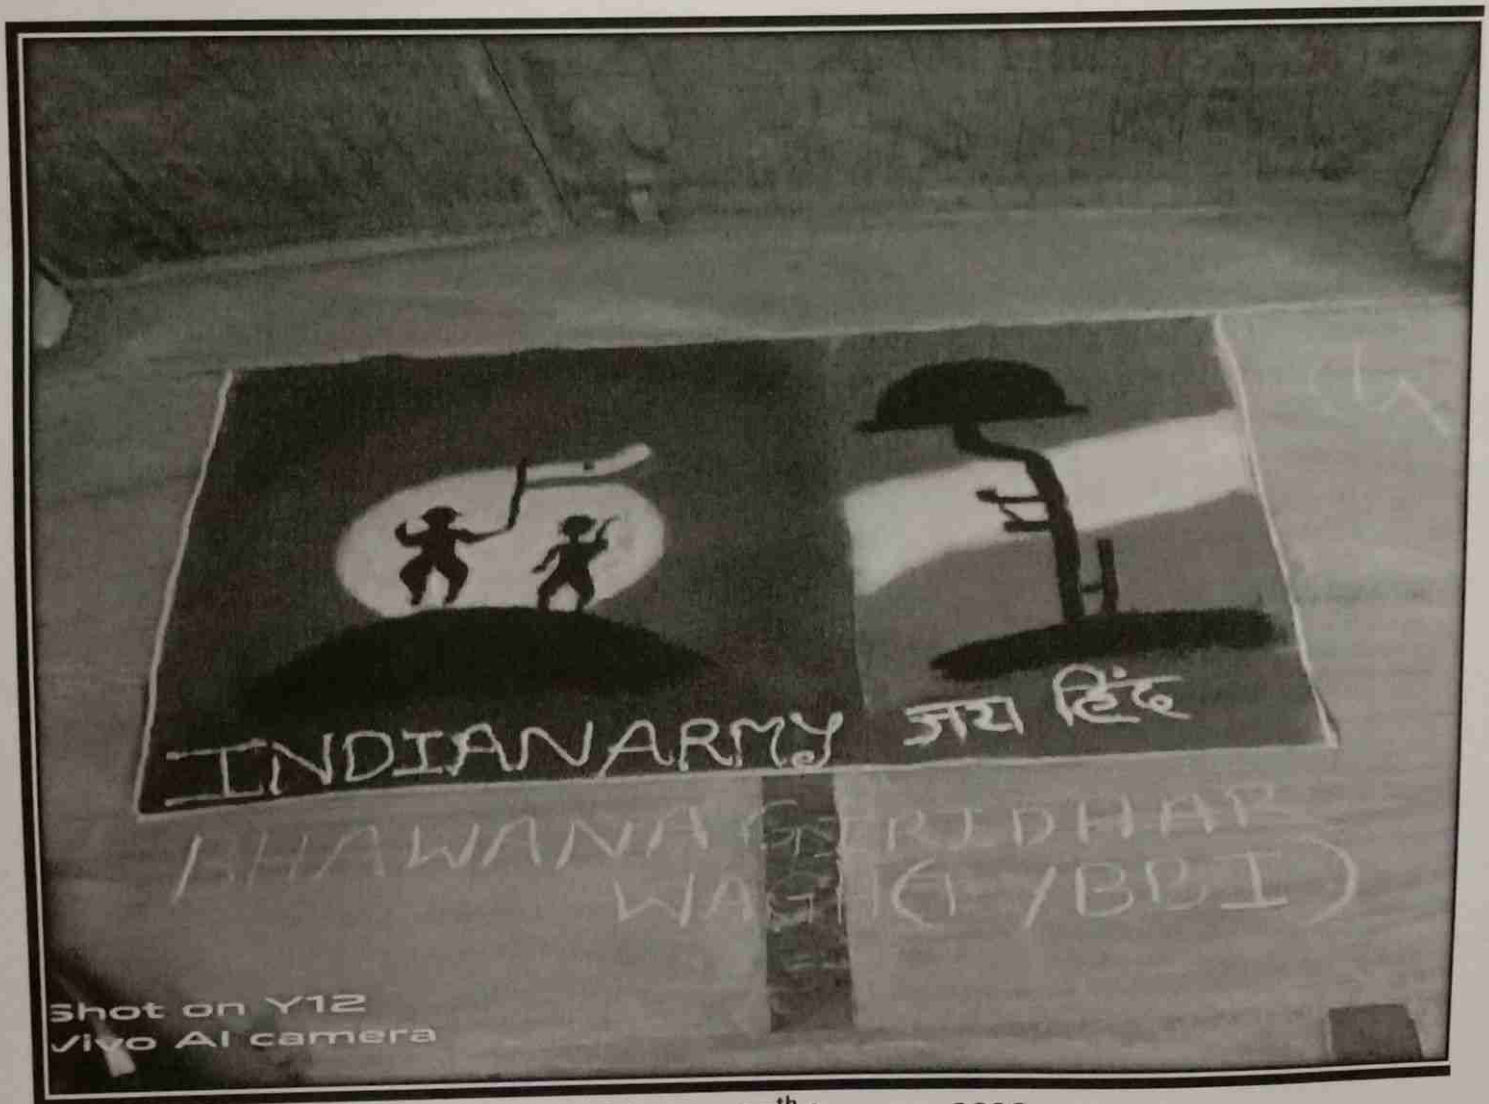 INDIAN ARMY जय हिंद
BHAWANA GIRIDHAR
WAGH
Shot on Y12
Vivo AI camera
th